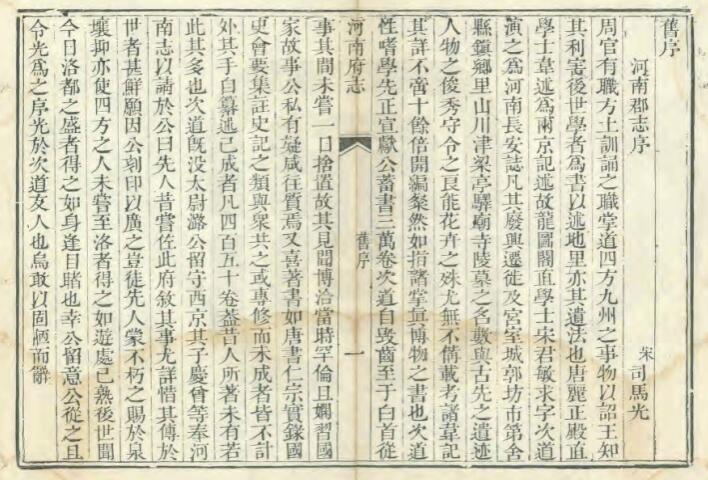 舊序
河南郡志序
宋司馬光
周官有職方土訓誦訓之職掌道四方九州之事物以詔王知
其利害後世學者為書以述地里亦其遺法也唐麗正殿直
學士韋述為兩京記述故龍圖閣直學士宋君敏求字次道
演之為河南長安誌凡其廢興遷徙及宮室城郭坊市第舍
縣鎮鄉里山川津梁亭驛廟寺陵墓之名數與古先之遺迹
人物之俊秀守令之良能花卉之殊尤無不備載考諸韋記
其詳不啻十餘倍開編粲然如指諸掌真博物之書也次道
性嗜學先正宣獻公蓄書三萬卷次道自毀齒至于白首從
河南府志
舊序
一
事其間未嘗一口捨置故其見聞博洽當時罕倫且嫻習國
家故事公私有疑咸往質焉又喜著書如唐書仁宗實錄國
史會要集註史記之類與眾共之或專修而未成者皆不計
外其手自纂述已成者凡四百五十卷蓋昔人所著未有若
此其多也次道既没太尉潞公留守西京其子慶曾等奉河
南志以請於公曰先人昔嘗佐此府敘其事尤詳惜其傳於
世者甚鮮願因公刻印以廣之豈徒先人蒙不朽之賜於泉
壤抑亦使四方之人未嘗至洛者得之如遊處已熟後世聞
今日洛都之盛者得之如身逢目睹也幸公留意公從之且
令光為之序光於次道友人也烏敢以固陋而辭